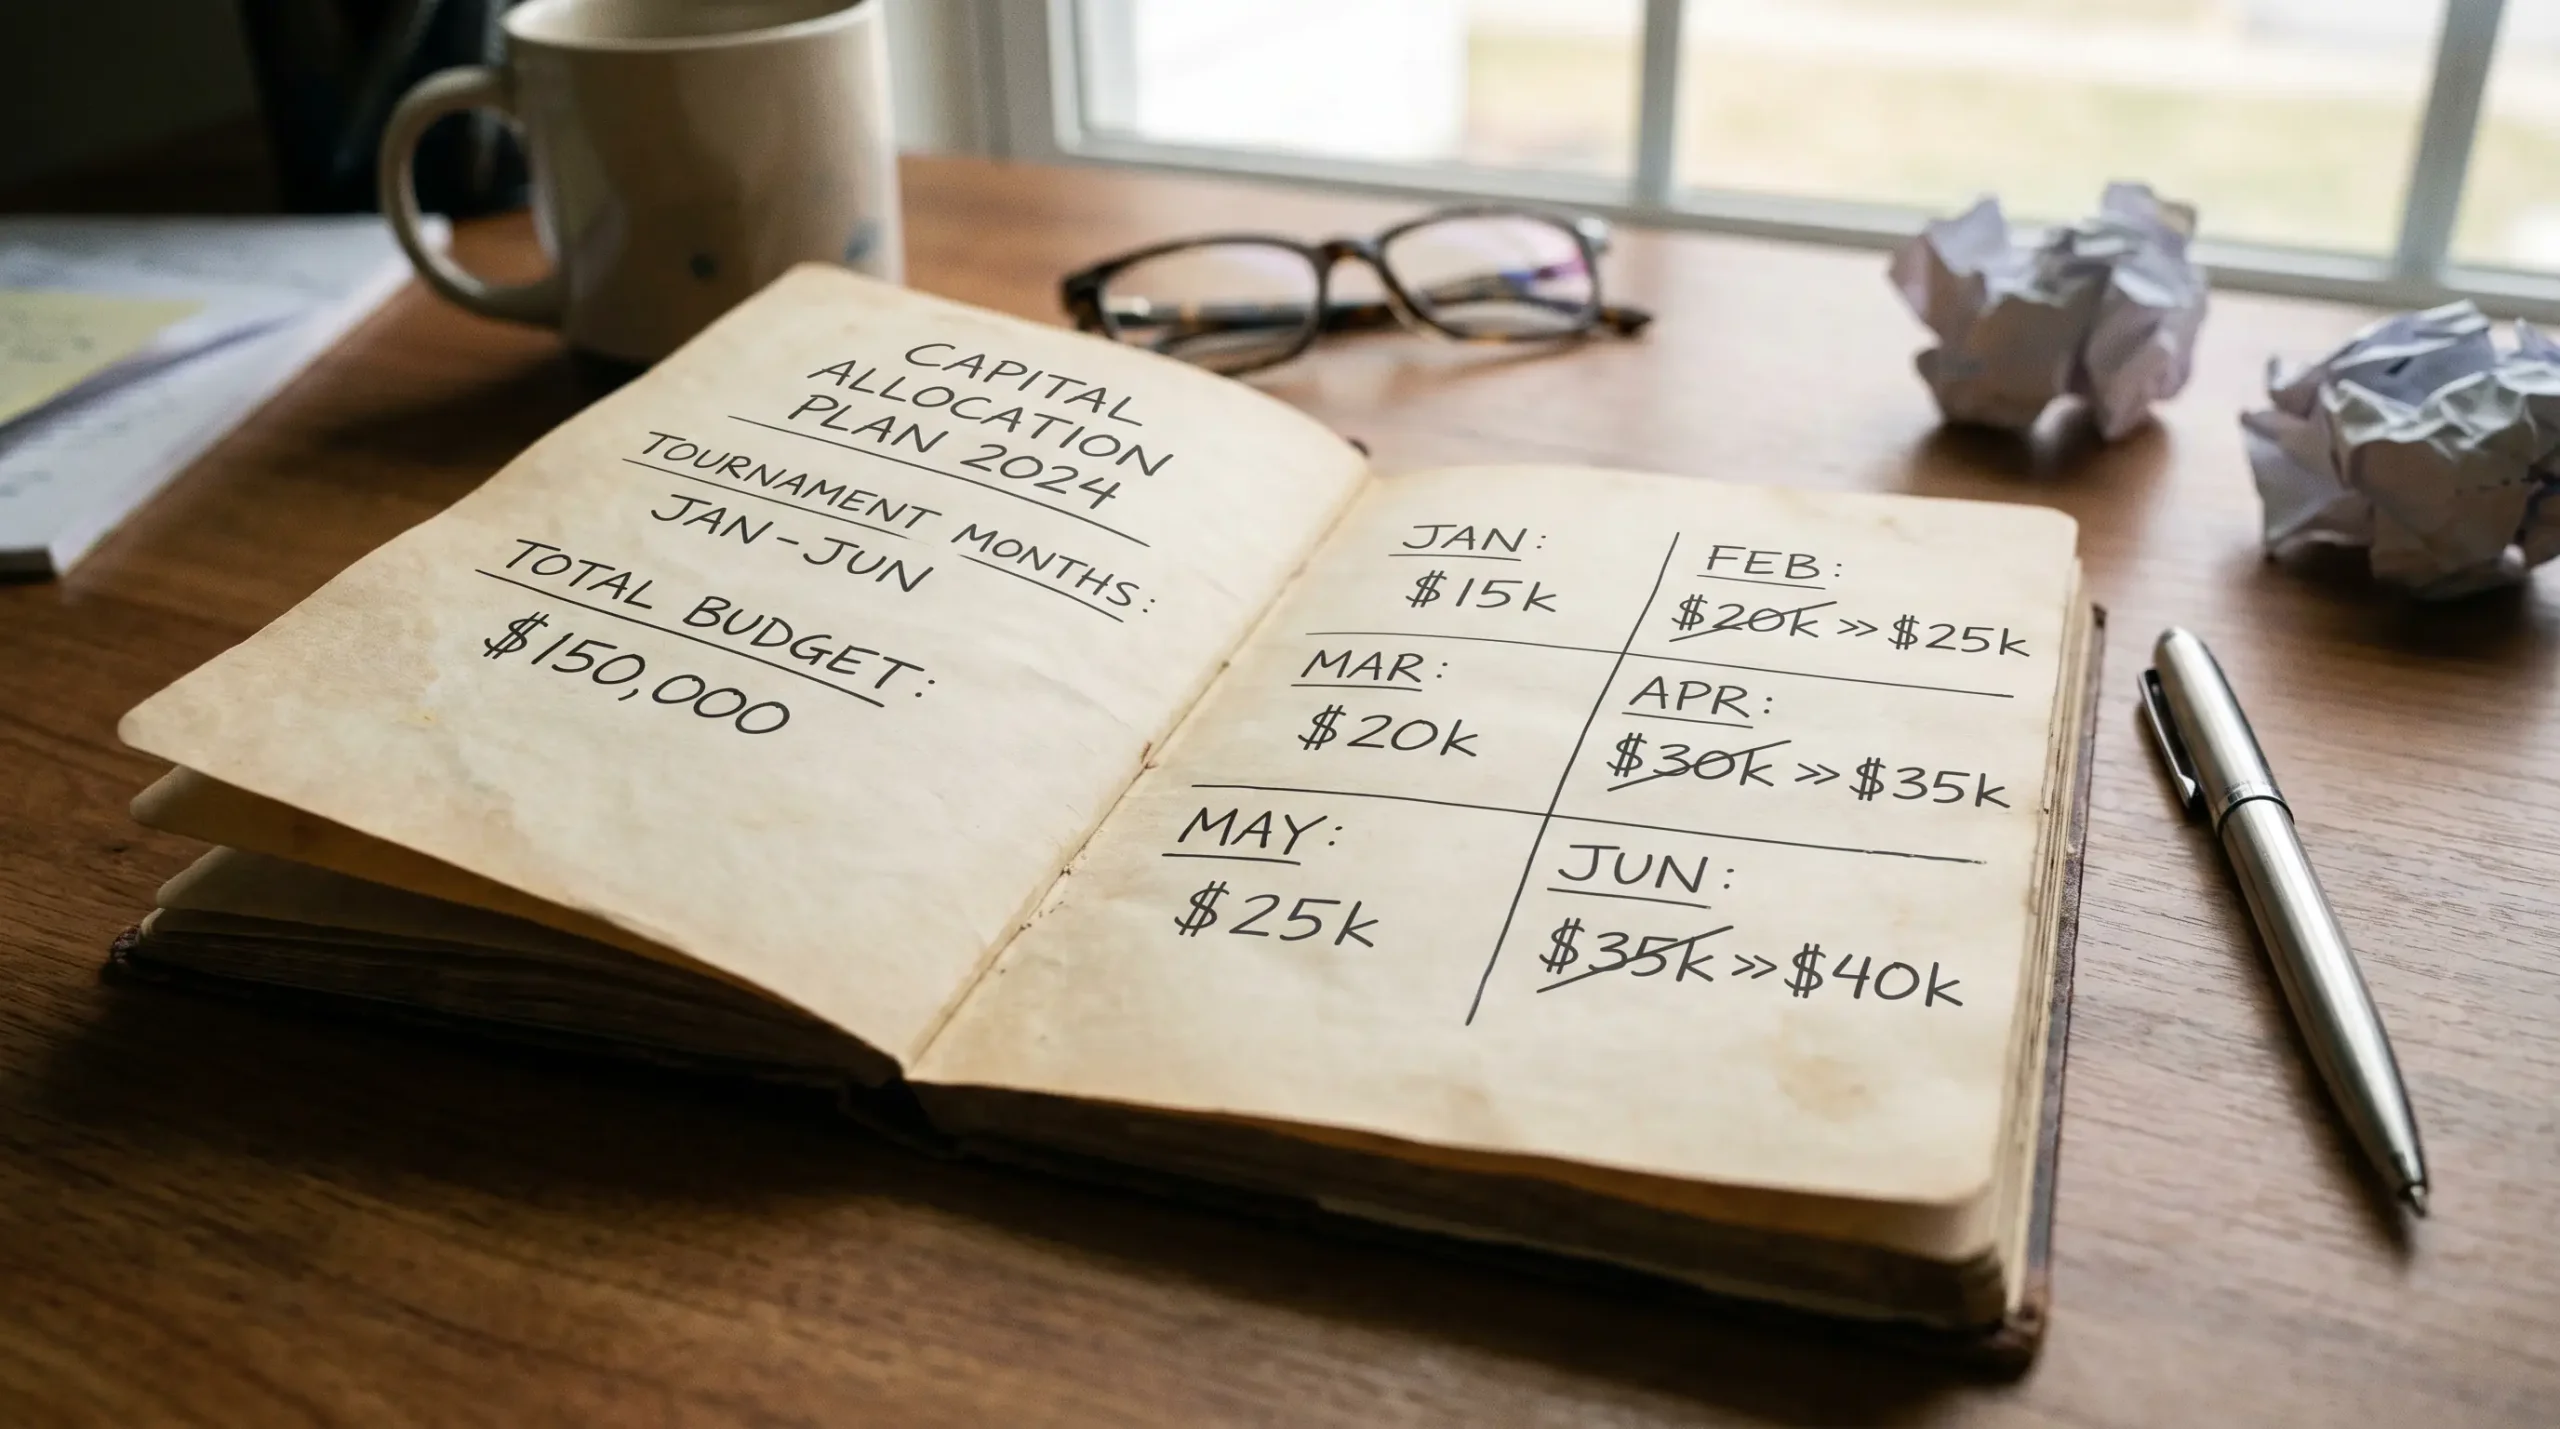 CAPITAL
ALLOCATION
PLAN 2024
TOURNAMENT MONTHS:
JAN-JUN
TOTAL BUDGET:
$150,000
JAN:
$15k
FEB:
$20k >> $25k
MAR:
$20k
APR:
$30k >> $35k
MAY:
$25k
JUN:
$35k >> $40k